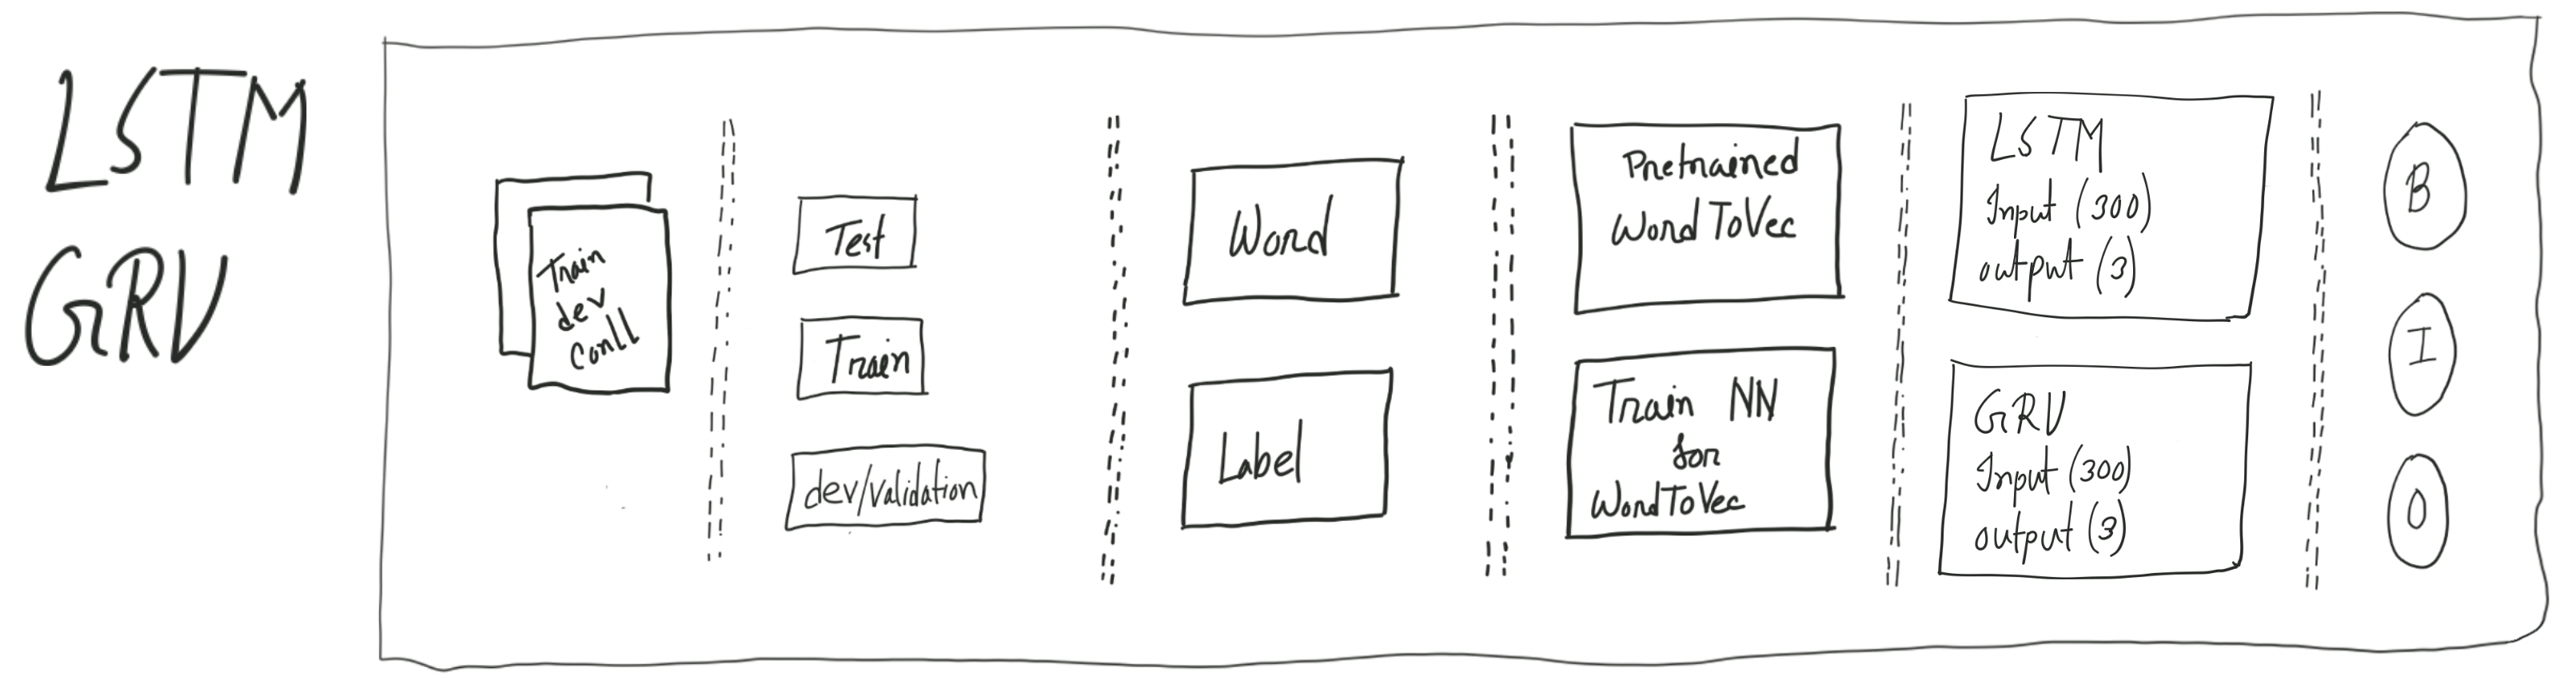 LSTM
GRU
Train
dev
Conll
Test
Train
dev/validation
Word
Label
Pretrained
WordToVec
Train NN
for
WordToVec
LSTM
Input (300)
output (3)
GRU
Input (300)
output (3)
B
I
O